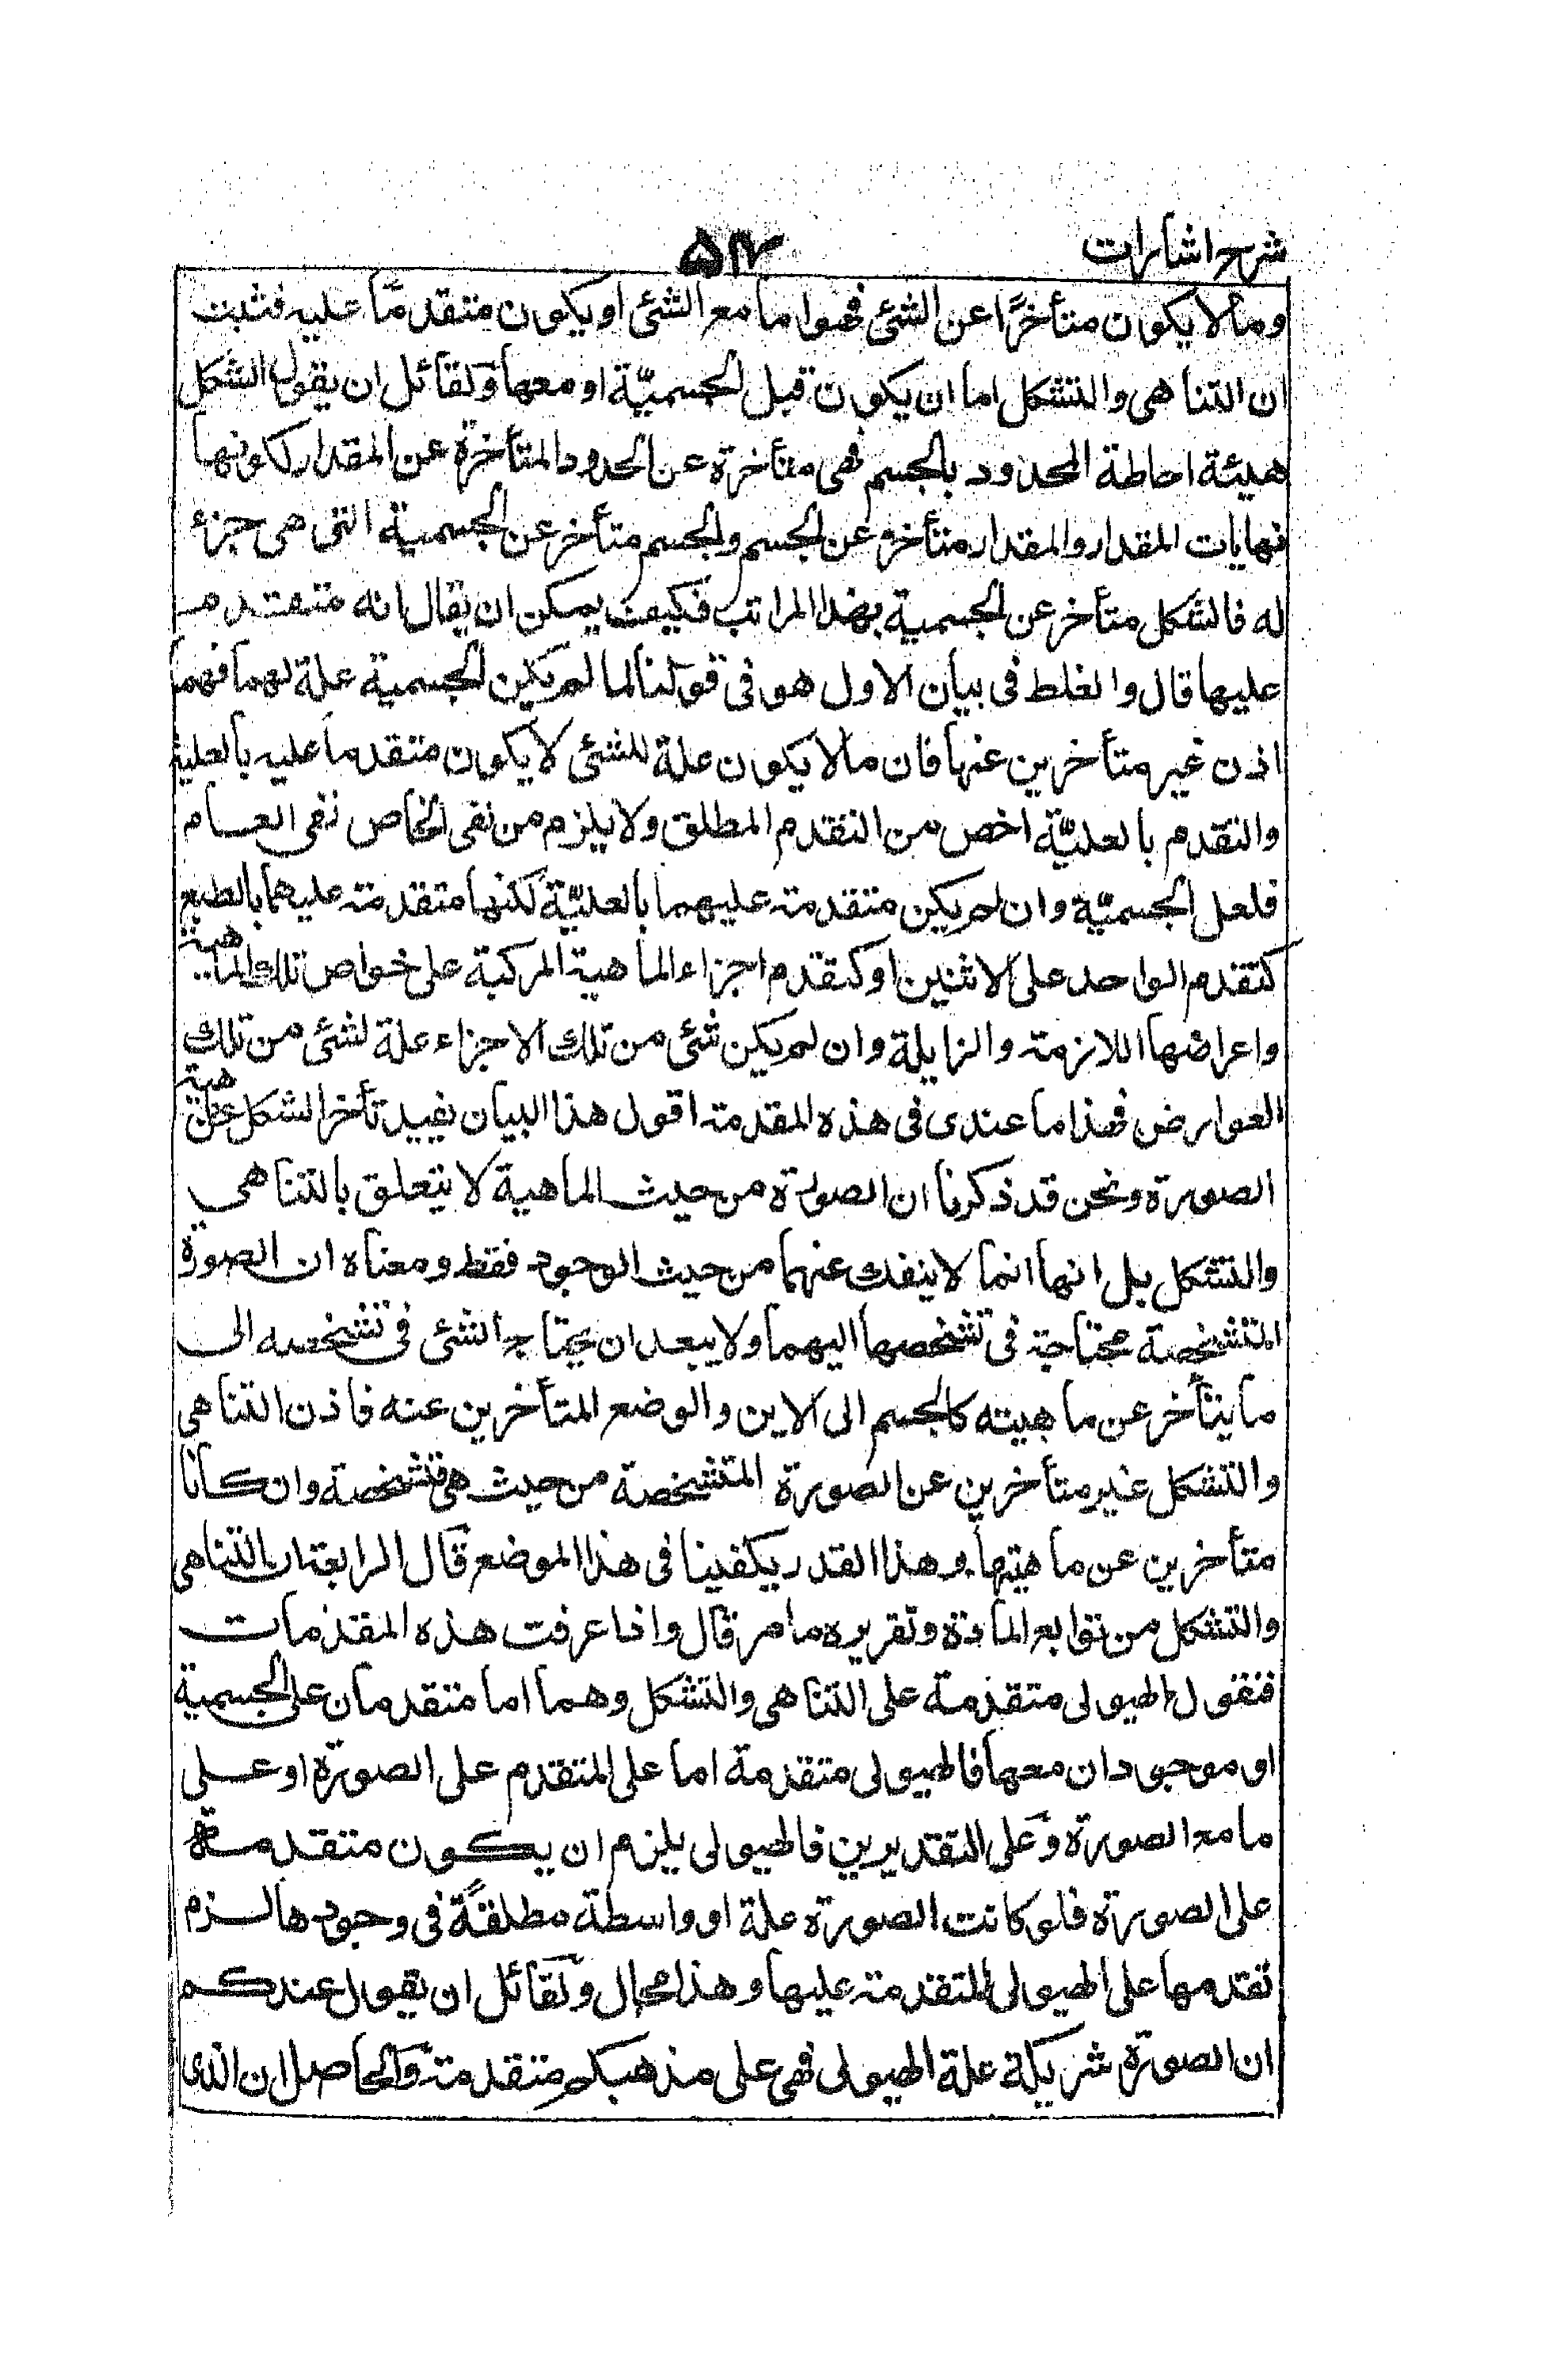 شرح اشارات
۵۴
وما لا يكون متأخرًا عن الشئ فهو اما مع الشئ او يكون متقدمًا عليه فثبت
ان التناهى والتشكل اما ان يكون قبل الجسميّة او معها ولقائل ان يقول الشكل
هيئة احاطة المحدود بالجسم فهى متأخرة عن الحدود المتأخرة عن المقدار لكونها
نهايات المقدار والمقدار متأخر عن الجسم والجسم متأخر عن الجسمية التى هى جزء
له فالشكل متأخر عن الجسمية بهذا المراتب فكيف يمكن ان يقال انه متقدم
عليها قال والغلط فى بيان الاول هو فى قولنا لما لم يكن الجسمية علة لهما فهما
اذن غير متأخرين عنها فان ما لا يكون علة للشئ لا يكون متقدما عليه بالعلية
والتقدم بالعليّة اخص من التقدم المطلق ولا يلزم من نفى الخاص نفى العام
فلعل الجسميّة وان لم يكن متقدمة عليهما بالعليّة لكنها متقدمة عليهما بالطبع
كتقدم الواحد على الاثنين او كتقدم اجزاء الماهية المركبة على خواص تلك الماهية
واعراضها اللازمة والزايلة وان لم يكن شئ من تلك الاجزاء علة لشئ من تلك
العوارض فهذا ما عندى فى هذه المقدمة اقول هذا البيان يفيد تأخر الشكل عن ماهية
الصورة ونحن قد ذكرنا ان الصورة من حيث الماهية لا يتعلق بالتناهى
والتشكل بل انها انما لا ينفك عنهما من حيث الوجود فقط ومعناه ان الصورة
المتشخصة محتاجة فى تشخصها اليهما ولا يبعد ان يحتاج الشئ فى تشخصه الى
ما يتأخر عن ماهيته كالجسم الى الاين والوضع المتأخرين عنه فاذن التناهى
والتشكل غير متأخرين عن الصورة المتشخصة من حيث هى متشخصة وان كانا
متأخرين عن ماهيتها وهذا القدر يكفينا فى هذا الموضع قال الرابعة ان التناهى
والتشكل من توابع المادة وتقريره ما مر قال واذا عرفت هذه المقدمات
فنقول الهيولى متقدمة على التناهى والتشكل وهما اما متقدمان على الجسمية
او موجودان معها فالهيولى متقدمة اما على المتقدم على الصورة او على
ما مع الصورة وعلى التقديرين فالهيولى يلزم ان يكون متقدمة
على الصورة فلو كانت الصورة علة او واسطة مطلقة فى وجودها لزم
تقدمها على الهيولى المتقدمة عليها وهذا محال ولقائل ان يقول عندكم
ان الصورة شريكة علة الهيولى فهى على مذهبكم متقدمة والحاصل ان الذى